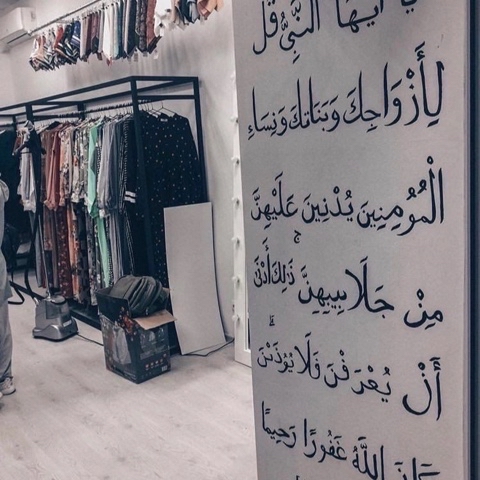 يا أيها النبي قل
لِأَزْوَاجِكَ وَبَنَاتِكَ وَنِسَاءِ
الْمُؤْمِنِينَ يُدْنِينَ عَلَيْهِنَّ
مِنْ جَلَابِيبِهِنَّ ۚ ذَٰلِكَ أَدْنَىٰ
أَنْ يُعْرَفْنَ فَلَا يُؤْذَيْنَ ۗ
وَكَانَ اللَّهُ غَفُورًا رَحِيمًا